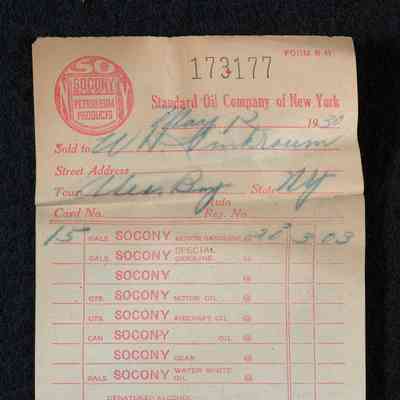 FORM R-11
SO
SOCONY
PETROLEUM
PRODUCTS
173177
Standard Oil Company of New York
May 12 1930
Sold to W H
Street Address
Town Alex. Bay State NY
Card No. Auto Reg. No.
15 GALS SOCONY MOTOR GASOLINE @ 20² 3 03
GALS SOCONY SPECIAL GASOLINE @
SOCONY @
QTS SOCONY MOTOR OIL @
QTS SOCONY AIRCRAFT OIL @
CAN SOCONY OIL @
SOCONY GEAR @
GALS SOCONY WATER WHITE OIL @
DENATURED ALCOHOL